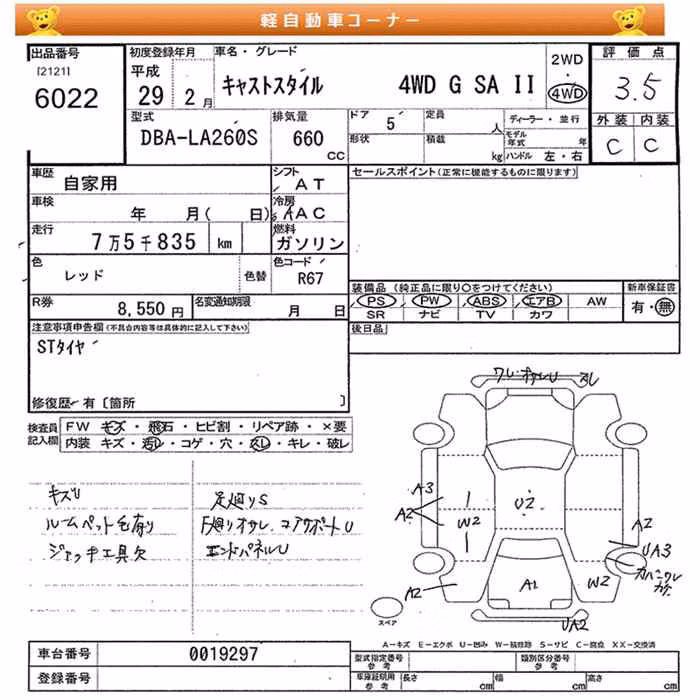 軽自動車コーナー
出品番号
[2121]
6022
初度登録年月
平成
29 2月
車名・グレード
キャストスタイル 4WD G SA II
2WD
・
4WD
評価点
3.5
外装 内装
C C
型式
DBA-LA260S
排気量
660
CC
ドア 5
形状
定員
人
積載
kg
ディーラー・並行
モデル
年式 年
ハンドル 左・右
車歴
自家用
シフト
AT
車検
年 月( 日)
冷房
AAC
走行
7万5千835 km
燃料
ガソリン
色
レッド
色替
色コード
R67
R券
8,550円
名変通知期限
月 日
セールスポイント(正常に機能するものに限ります)
装備品 (純正品に限り○をつけてください)
PS PW ABS エアB AW
SR ナビ TV カワ
新車保証書
有・無
後日品
注意事項申告欄(不具合内容等は具体的に記入して下さい)
STタイヤ
修復歴 有〔箇所 〕
検査員
記入欄
FW キズ・飛石・ヒビ割・リペア跡・×要
内装 キズ・汚レ・コゲ・穴・スレ・キレ・破レ
キズU
ルームペット毛有り
ジャッキ工具欠
足廻りS
下廻りオサレ コアサポートU
エンドパネルU
ワレ・オサレU スレ
A3
A2
W2
U2
A2
UA3
A2
A1
W2
UA2
スペア
A-キズ E-エクボ U-凹み W-補修跡 S-サビ C-腐食 XX-交換済
車台番号
0019297
登録番号
型式指定番号
参考
類別区分番号
参考
車庫証明用
参考
長さ cm
幅 cm
高さ cm